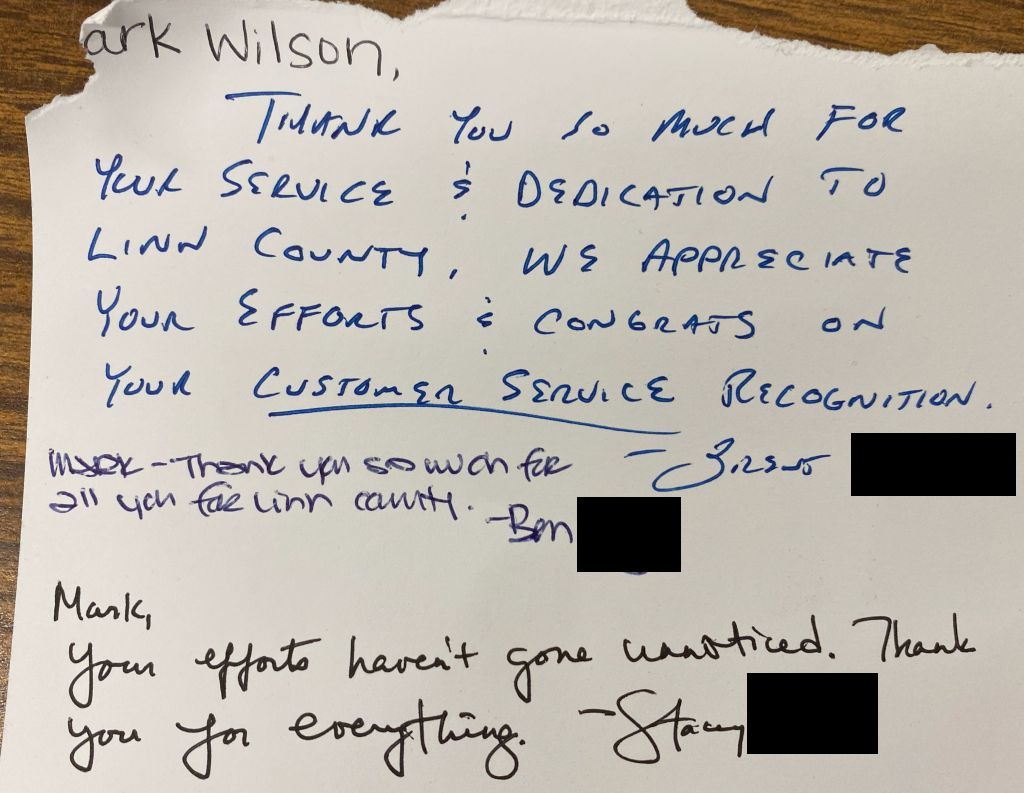 ark Wilson,
THANK YOU SO MUCH FOR
YOUR SERVICE & DEDICATION TO
LINN COUNTY, WE APPRECIATE
YOUR EFFORTS & CONGRATS ON
YOUR CUSTOMER SERVICE RECOGNITION.
Mark - Thank you so much for
- Brent
all you for Linn county.
- Ben
Mark,
Your efforts haven't gone unnoticed. Thank
you for everything. - Stacey